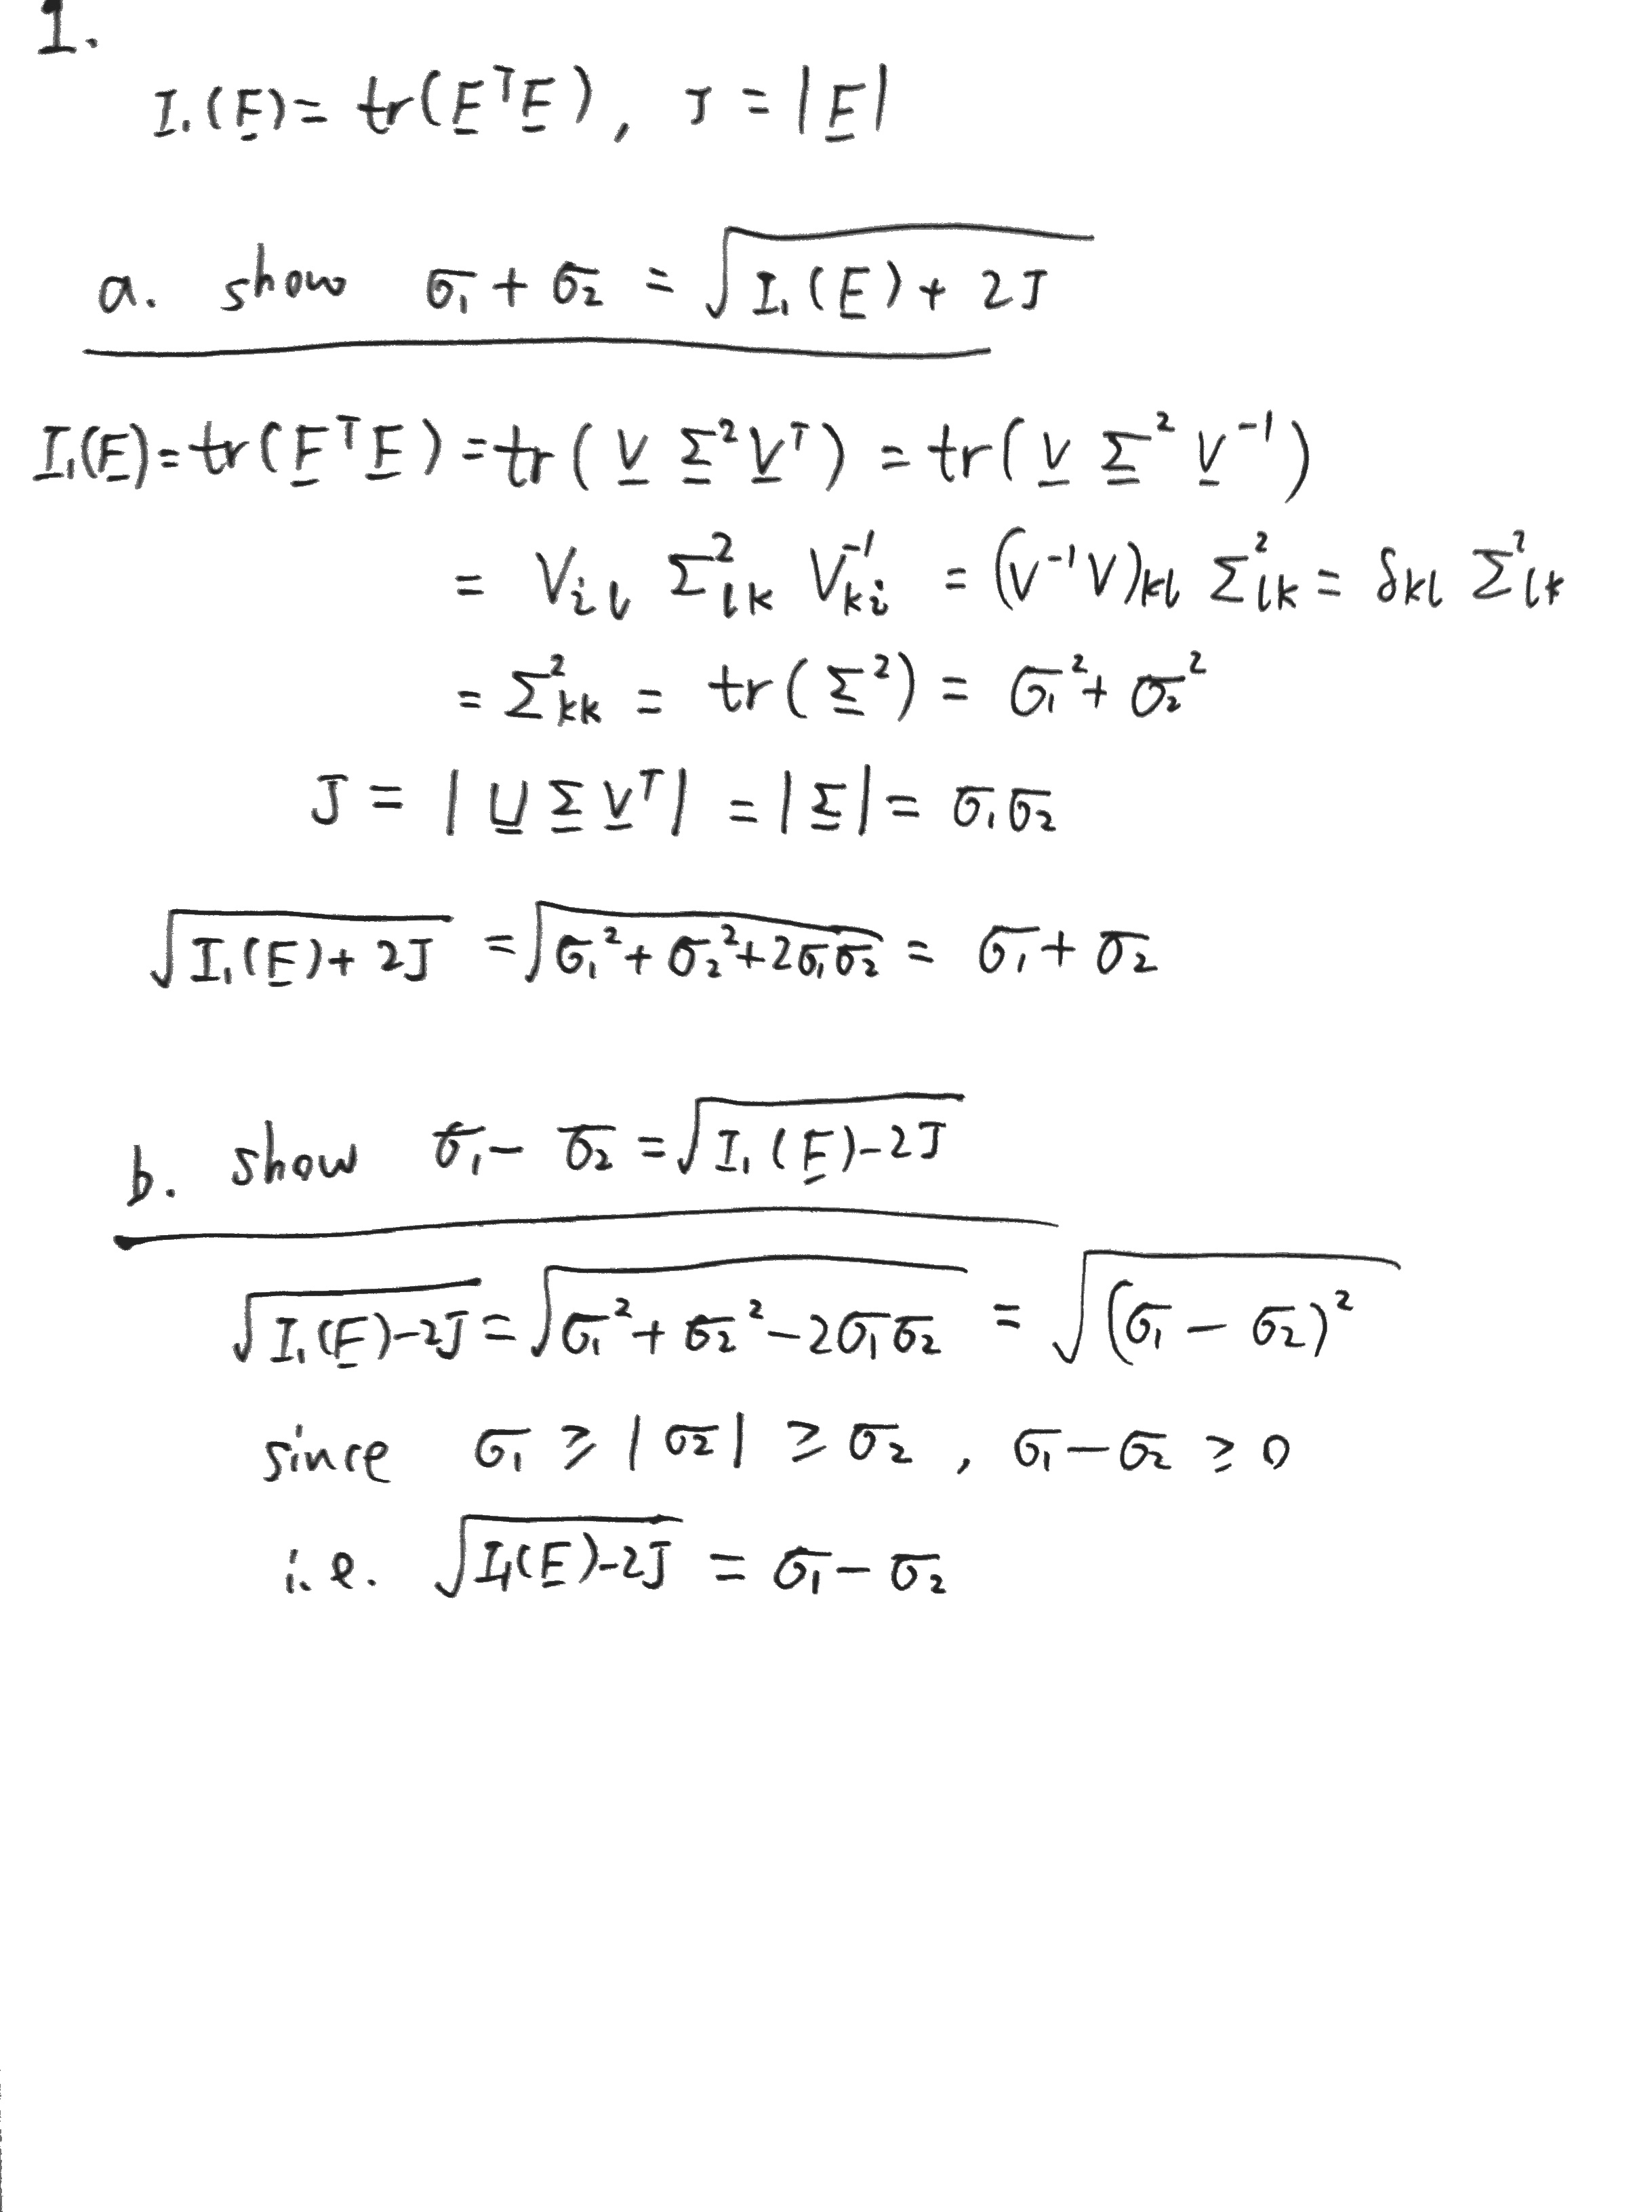 1.
I₁(F̲) = tr(F̲ᵀF̲), J = |F̲|
a. show σ₁ + σ₂ = √(I₁(F̲) + 2J)
I₁(F̲) = tr(F̲ᵀF̲) = tr(V̲ Σ̲² V̲ᵀ) = tr(V̲ Σ̲² V̲⁻¹)
= V_il Σ²_lk V⁻¹_ki = (V⁻¹V)_kl Σ²_lk = δ_kl Σ²_lk
= Σ²_kk = tr(Σ̲²) = σ₁² + σ₂²
J = |U̲ Σ̲ V̲ᵀ| = |Σ̲| = σ₁σ₂
√(I₁(F̲) + 2J) = √(σ₁² + σ₂² + 2σ₁σ₂) = σ₁ + σ₂
b. show σ₁ - σ₂ = √(I₁(F̲) - 2J)
√(I₁(F̲) - 2J) = √(σ₁² + σ₂² - 2σ₁σ₂) = √((σ₁ - σ₂)²)
since σ₁ ≥ |σ₂| ≥ σ₂, σ₁ - σ₂ ≥ 0
i.e. √(I₁(F̲) - 2J) = σ₁ - σ₂